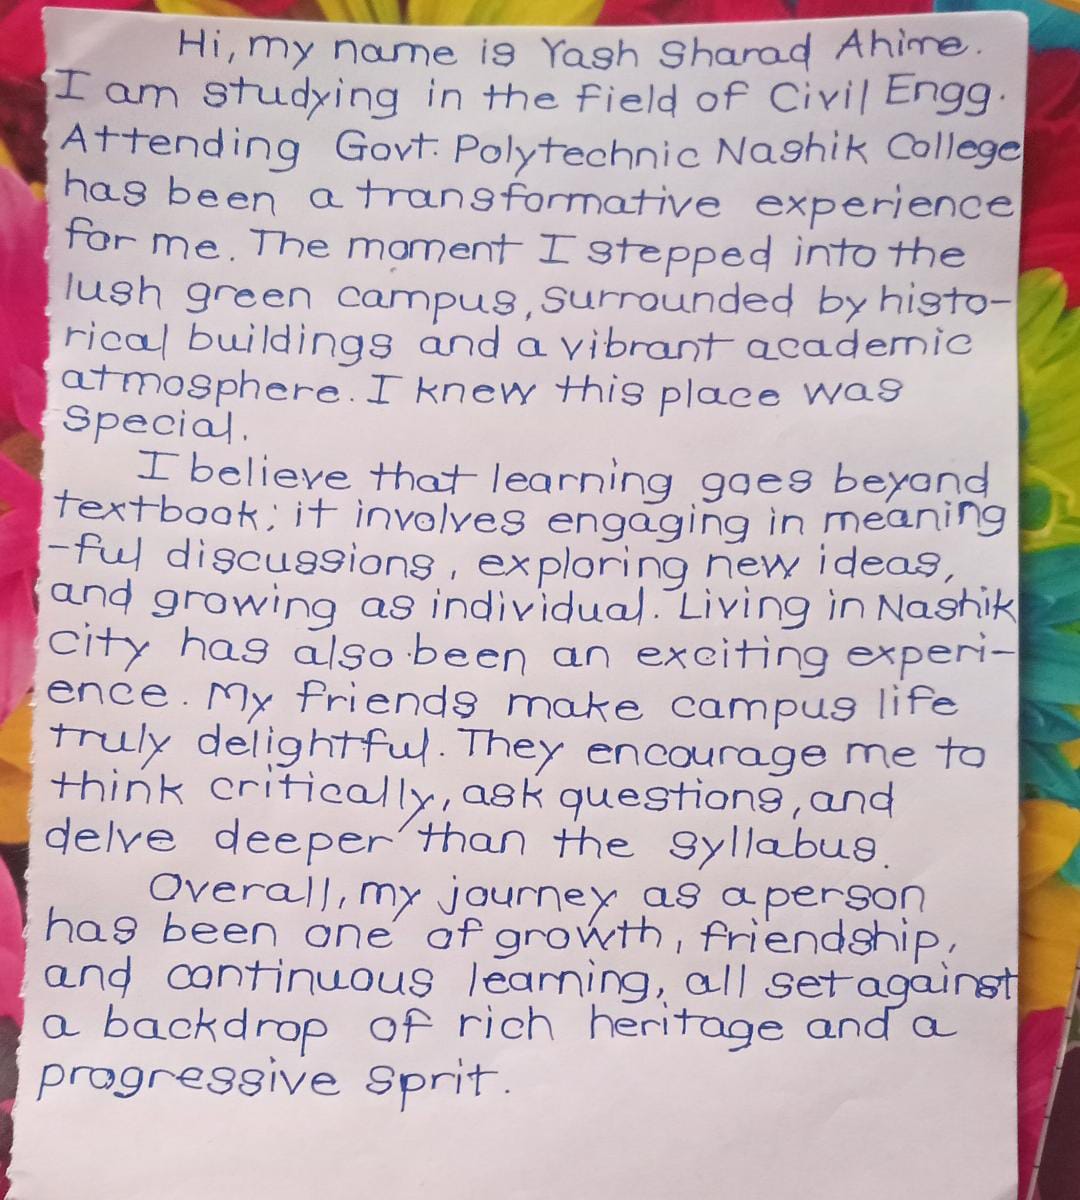 Hi, my name is Yash Sharad Ahire.
I am studying in the field of Civil Engg.
Attending Govt. Polytechnic Nashik College
has been a transformative experience
for me. The moment I stepped into the
lush green campus, surrounded by histo-
rical buildings and a vibrant academic
atmosphere. I knew this place was
special.
I believe that learning goes beyond
textbook; it involves engaging in meaning
-ful discussions, exploring new ideas,
and growing as individual. Living in Nashik
city has also been an exciting experi-
ence. My friends make campus life
truly delightful. They encourage me to
think critically, ask questions, and
delve deeper than the syllabus.
Overall, my journey as a person
has been one of growth, friendship,
and continuous learning, all set against
a backdrop of rich heritage and a
progressive sprit.